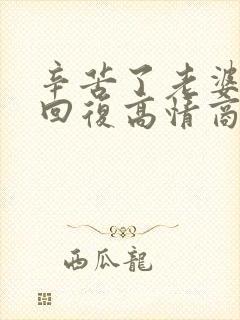 辛苦了老婆
回復高情商
西瓜龍